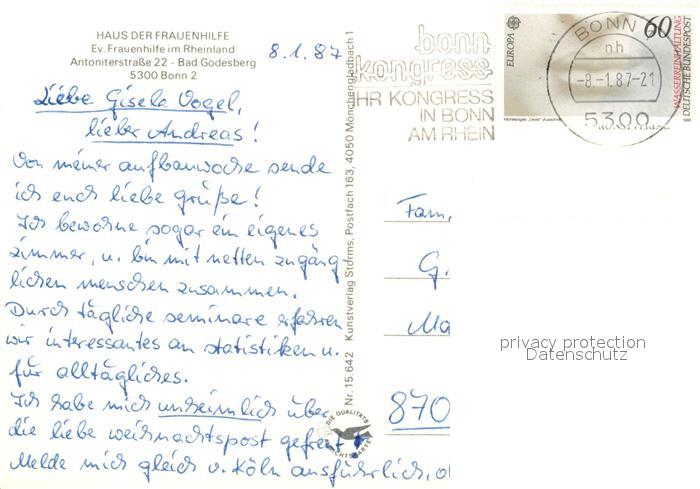 HAUS DER FRAUENHILFE
Ev. Frauenhilfe im Rheinland
Antoniterstraße 22 - Bad Godesberg
5300 Bonn 2
8.1.87
Liebe Gisela Vogel,
lieber Andreas!
Von meiner aufbauwoche sende
ich euch liebe grüße!
Ich bewohne sogar ein eigenes
zimmer, u. bin mit netten zugäng
lichen menschen zusammen.
Durch tägliche seminare erfahren
wir interessantes an statistiken u.
für alltägliches.
Ich habe mich unheimlich über
die liebe weihnachtspost gefreut!
Melde mich gleich v. Köln ausführlich, o
Nr. 15 642 Kunstverlag Storms, Postfach 163, 4050 Mönchengladbach 1
DIE QUALITÄTS
bonn
kongress
IHR KONGRESS
IN BONN
AM RHEIN
EUROPA
60
WASSERREINHALTUNG
DEUTSCHE BUNDESPOST
BONN
nh
-8.-1.87-21
5300
Fam.
G.
Ma
870
privacy protection
Datenschutz